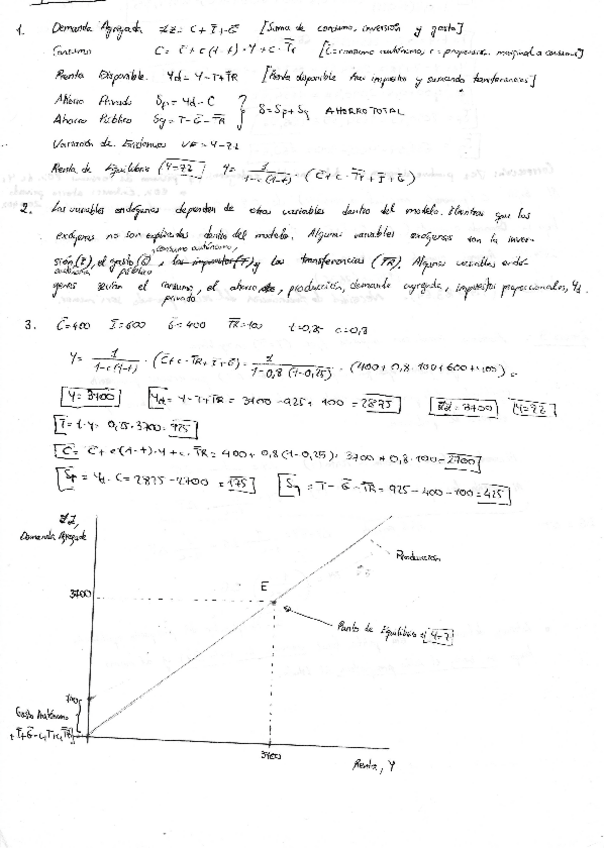 1. Demanda Agregada ZZ = C + I + G [Suma de consumo, inversión y gasto]
Consumo C = C̄ + c(1-t)·Y + c·T̄r [C̄=consumo autónomo, c = propensión marginal a consumir]
Renta Disponible. Yd = Y-T+TR [Renta disponible tras impuestos y sumando transferencias]
Ahorro Privado Sp = Yd - C
Ahorro Público Sg = T - G̅ - T̅R̅ } S = Sp + Sg AHORRO TOTAL
Variación de Existencias VE = Y-ZZ
Renta de Equilibrio [Y=ZZ] Y = 1/(1-c(1-t)) · (C̄ + c·T̅r̅ + I̅ + G̅)
2. Las variables endógenas dependen de otras variables dentro del modelo. Mientras que las
exógenas no son explicadas dentro del modelo. Algunas variables exógenas son la inver-
consumo autónomo,
sión (I̅), el gasto (G̅), y las transferencias (T̅R̅). Algunas variables endó-
autónoma público
genas serían el consumo, el ahorro, producción, demanda agregada, impuestos proporcionales, Yd.
privado
3. C̄=400 I̅=600 G̅=400 T̅R̅=100 t=0,25 c=0,8
Y = 1/(1-c(1-t)) · (C̄+c·TR+I̅+G̅) = 1/(1-0,8(1-0,25)) · (400+0,8·100+600+400) =
[Y=3700] [Yd = Y-T+TR = 3700-925+100 = 2875] [ZZ=3700] [Y=ZZ]
[T=t·Y= 0,25·3700=925]
[C = C̄ + c(1-t)·Y + c·T̅R̅ = 400+0,8(1-0,25)·3700+0,8·100=2700]
[Sp = Yd - C = 2875-2700 = 175] [Sg = T-G̅-T̅R̅ = 925-400-100=425]
ZZ,
Demanda Agregada
Producción
E
3700
Punto de Equilibrio
Gasto Autónomo
3700
Renta, Y